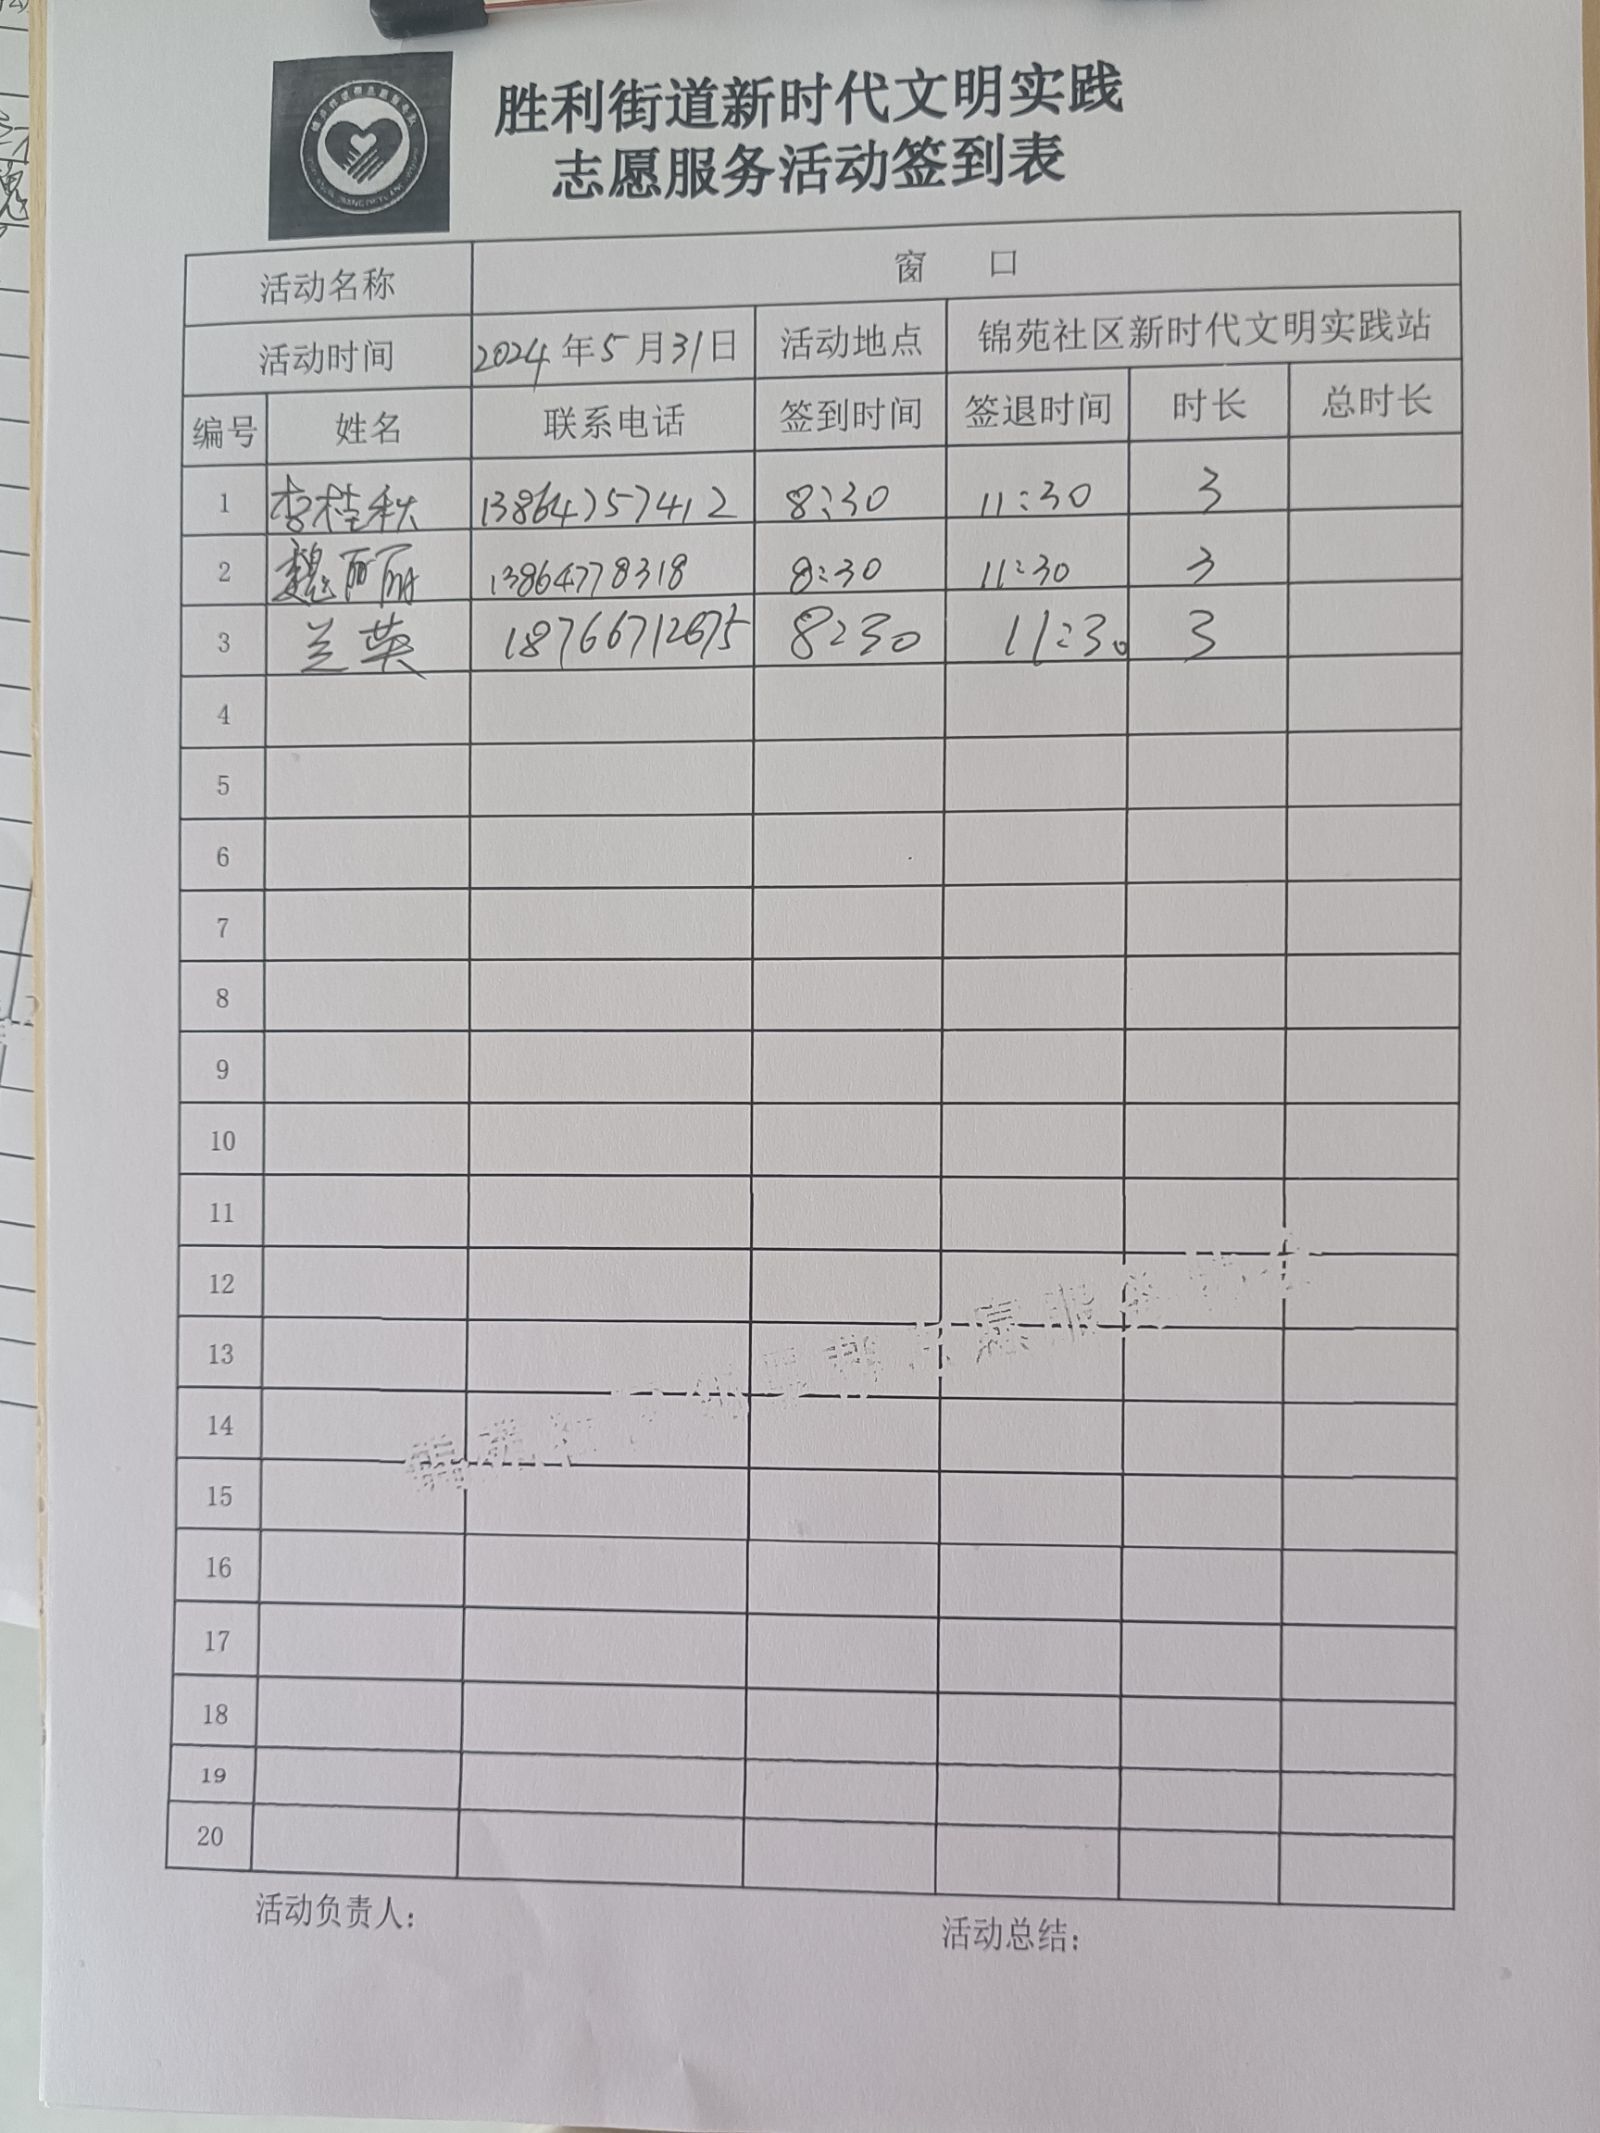 胜利街道新时代文明实践
志愿服务活动签到表
活动名称 窗 口
活动时间 2024年5月31日 活动地点 锦苑社区新时代文明实践站
编号 姓名 联系电话 签到时间 签退时间 时长 总时长
1 李桂秋 13864757412 8:30 11:30 3
2 魏丽丽 13864778318 8:30 11:30 3
3 兰英 18766712675 8:30 11:30 3
4
5
6
7
8
9
10
11
12
13
14
15
16
17
18
19
20
活动负责人: 活动总结: